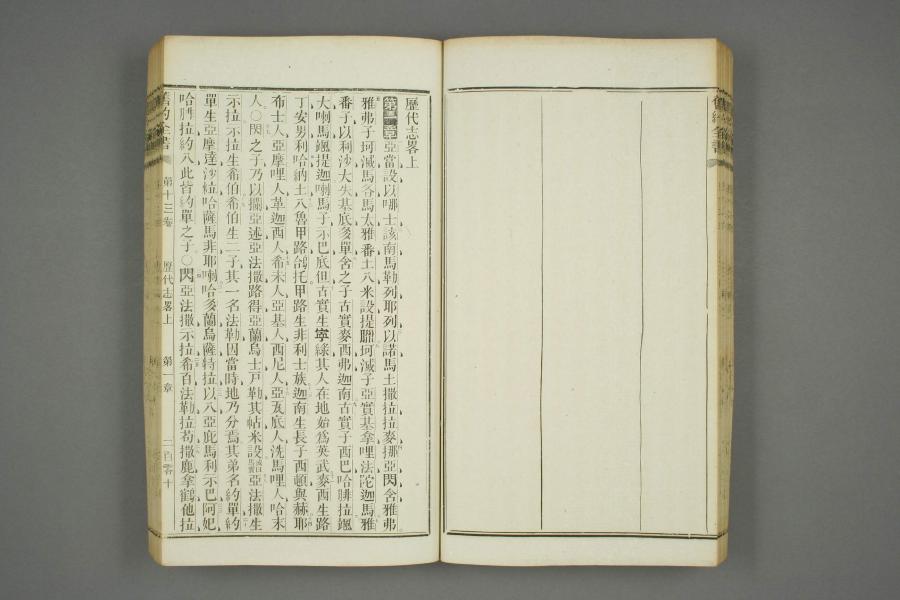 歷代志畧上
第一章亞當設以哪士該南馬勒列耶列以諾馬土撒拉拉麥挪亞閃含雅弗
雅弗子珂滅馬各馬太雅番土八米設提臘珂滅子亞實基拿哩法陀迦馬雅
番子以利沙大失基底多單含之子古實麥西弗迦南古實子西巴哈腓拉颯
大喇馬颯提迦喇馬子示巴底但古實生寧綠其人在地始為英武麥西生路
丁安男利哈納土八魯甲路鴿托甲路生非利士族迦南生長子西頓與赫耶
布士人亞摩哩人革迦西人希未人亞基人西尼人亞瓦底人洗馬哩人哈末
人○閃之子乃以攔亞述亞法撒路得亞蘭烏士戶勒其帖米設亞法撒生
示拉示拉生希伯希伯生二子其一名法勒因當時地乃分焉其弟名約單約
單生亞摩達沙拉哈薩馬非耶喇哈多蘭烏薩特拉以八亞庇馬利示巴阿妃
哈腓拉約八此皆約單之子○閃亞法撒示拉希百法勒拉苟撒鹿拿鶴他拉
舊約全書 第十三卷 歷代志畧上 第一章 二百零十